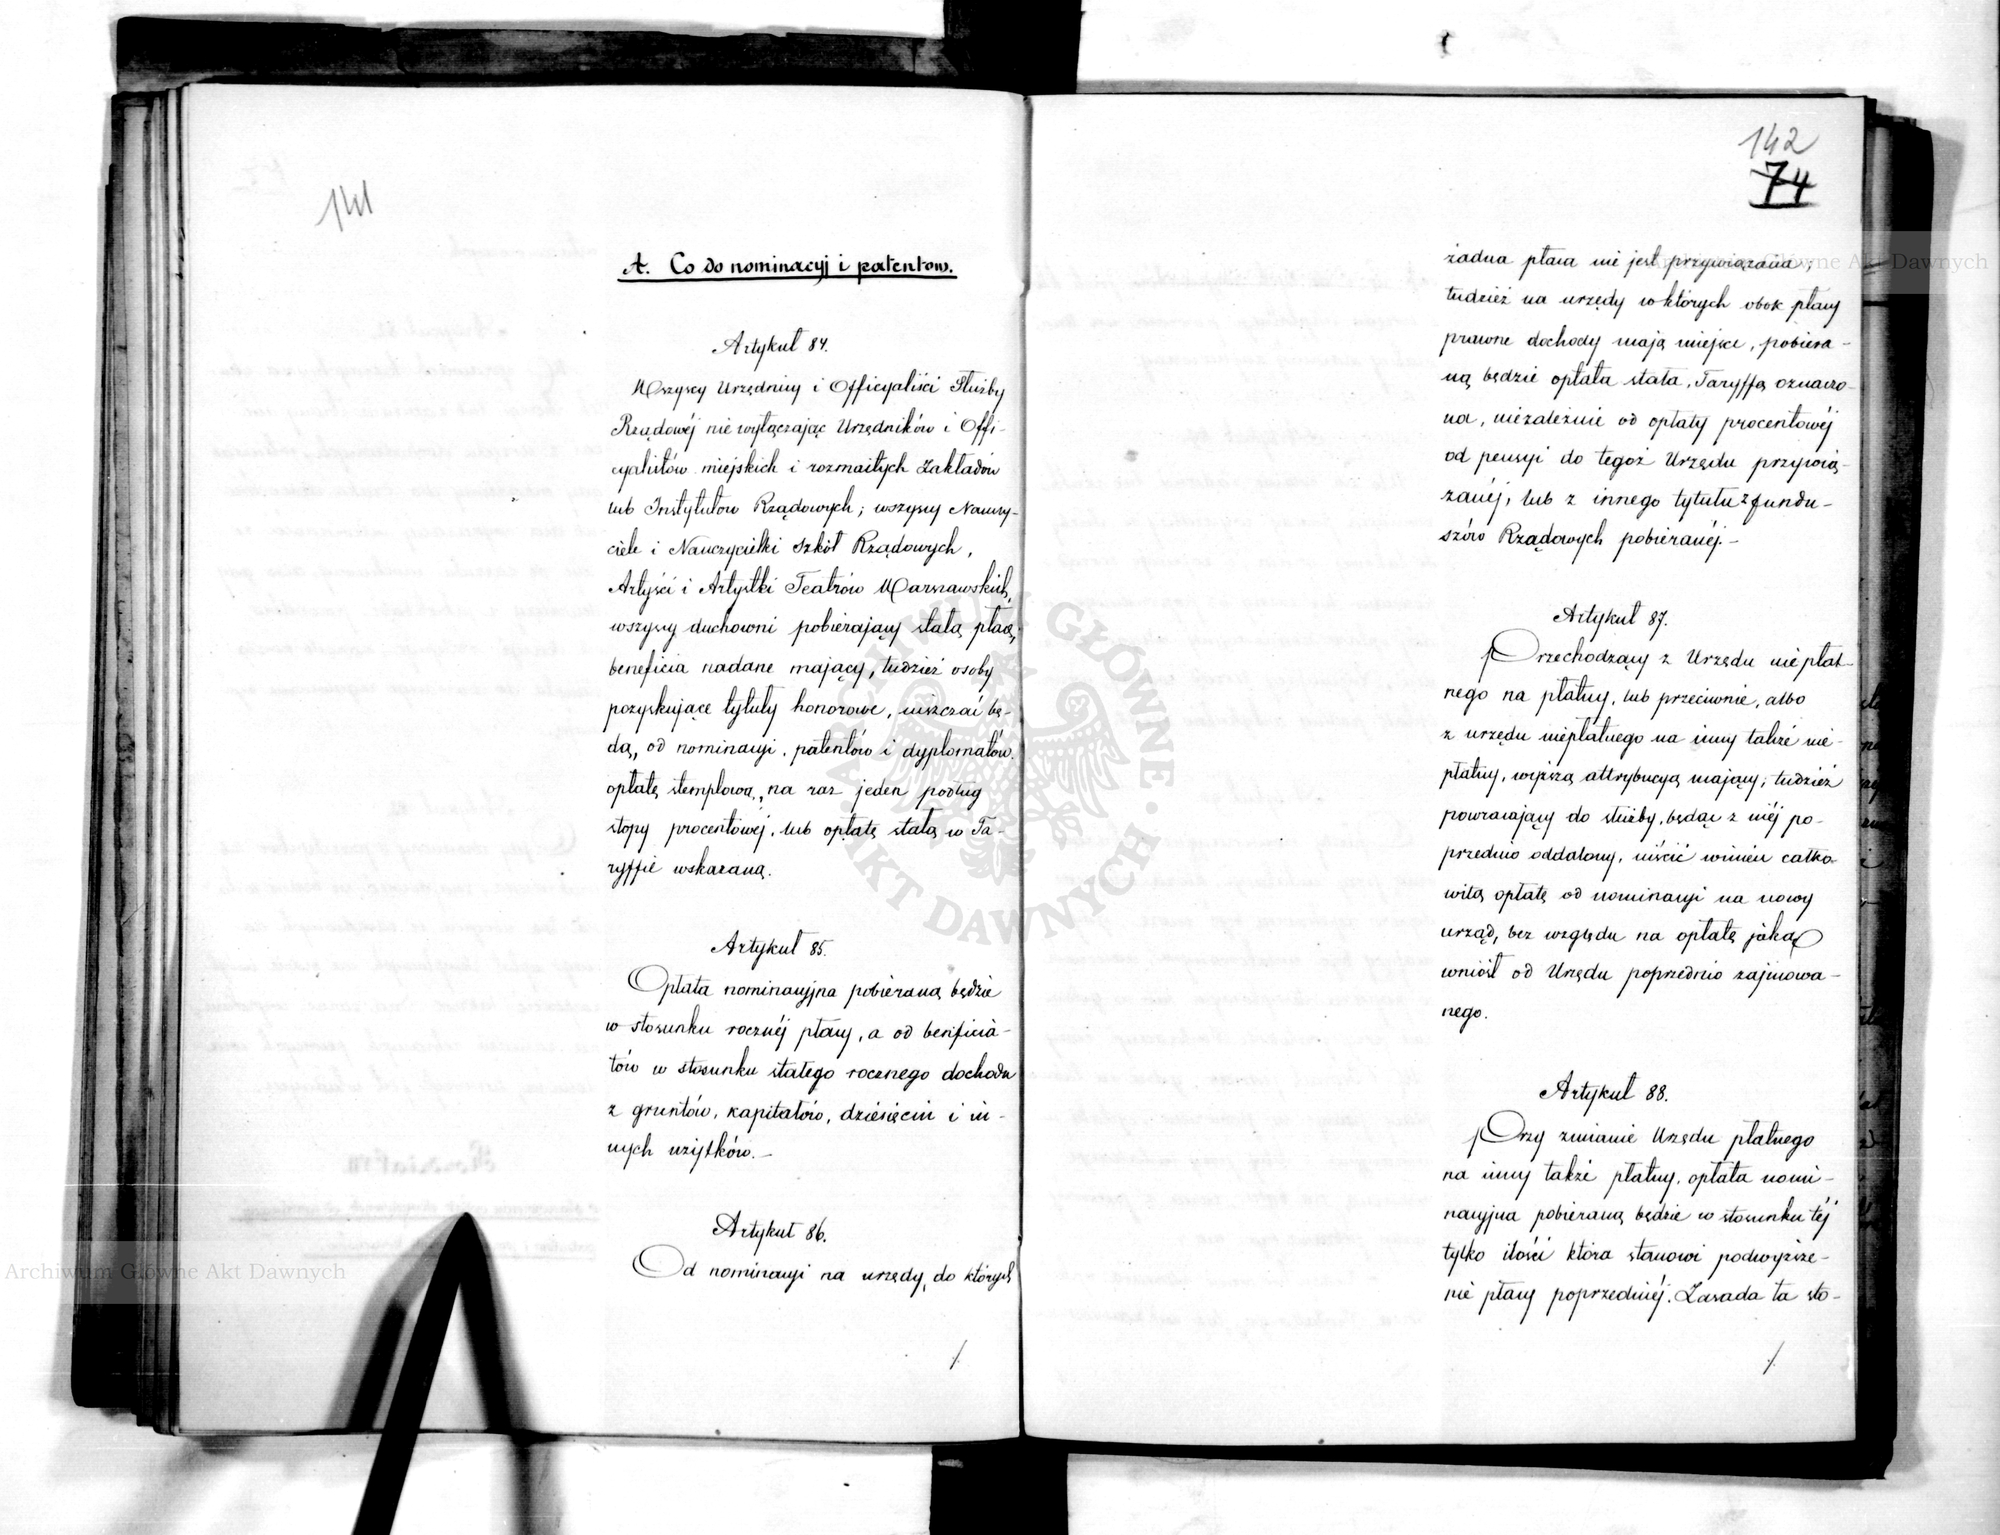 141
A. Co do nominacyj i patentow.
Artykuł 84.
Wszyscy Urzędnicy i Officyaliści Służby
Rządowéj nie wyłączając Urzędników i Offi-
cyalistów miejskich i rozmaitych Zakładów
lub Instytutów Rządowych; wszyscy Nauczy-
ciele i Nauczycielki Szkół Rządowych,
Artyści i Artystki Teatrów Warszawskich,
wszyscy duchowni pobierający stałą płacę,
beneficia nadane mający, tudzież osoby
pozyskujące tytuły honorowe, uiszczać bę-
dą, od nominacyi, patentów i dyplomatów
opłatę stemplową, na raz jeden podług
stopy procentowéj, lub opłatę stałą w Ta-
ryffie wskazaną.
Artykuł 85.
Opłata nominacyjna pobieraną będzie
w stosunku rocznéj płacy, a od beneficia-
tów w stosunku stałego rocznego dochodu
z gruntów, kapitałów, dziesięcin i in-
nych użytków.-
Artykuł 86.
Od nominacyi na urzędy, do których
/.
142
74
żadna płaca nie jest przywiązana;
tudzież na urzędy w których obok płacy
prawne dochody mają miejsce, pobiera-
ną będzie opłata stała, Taryffą oznaczo-
na, niezależnie od opłaty procentowéj
od pensyi do tegoż Urzędu przywią-
zanéj, lub z innego tytułu z fundu-
szów Rządowych pobieranéj.-
Artykuł 87.
Przechodzący z Urzędu niepłat-
nego na płatny, lub przeciwnie, albo
z urzędu niepłatnego na inny także nie-
płatny, wyższą attrybucyą mający; tudzież
powracający do służby, będąc z niéj po-
przednio oddalony, uiścić winien całko-
witą opłatę od nominacyi na nowy
urząd, bez względu na opłatę jaką
wniósł od Urzędu poprzednio zajmowa-
nego.
Artykuł 88.
Przy zmianie Urzędu płatnego
na inny także płatny, opłata nomi-
nacyjna pobieraną będzie w stosunku téj
tylko ilości która stanowi podwyższe-
nie płacy poprzedniéj. Zasada ta sto-
/.
Archiwum Główne Akt Dawnych
Archiwum Główne Akt Dawnych
ARCHIWUM GŁÓWNE AKT DAWNYCH